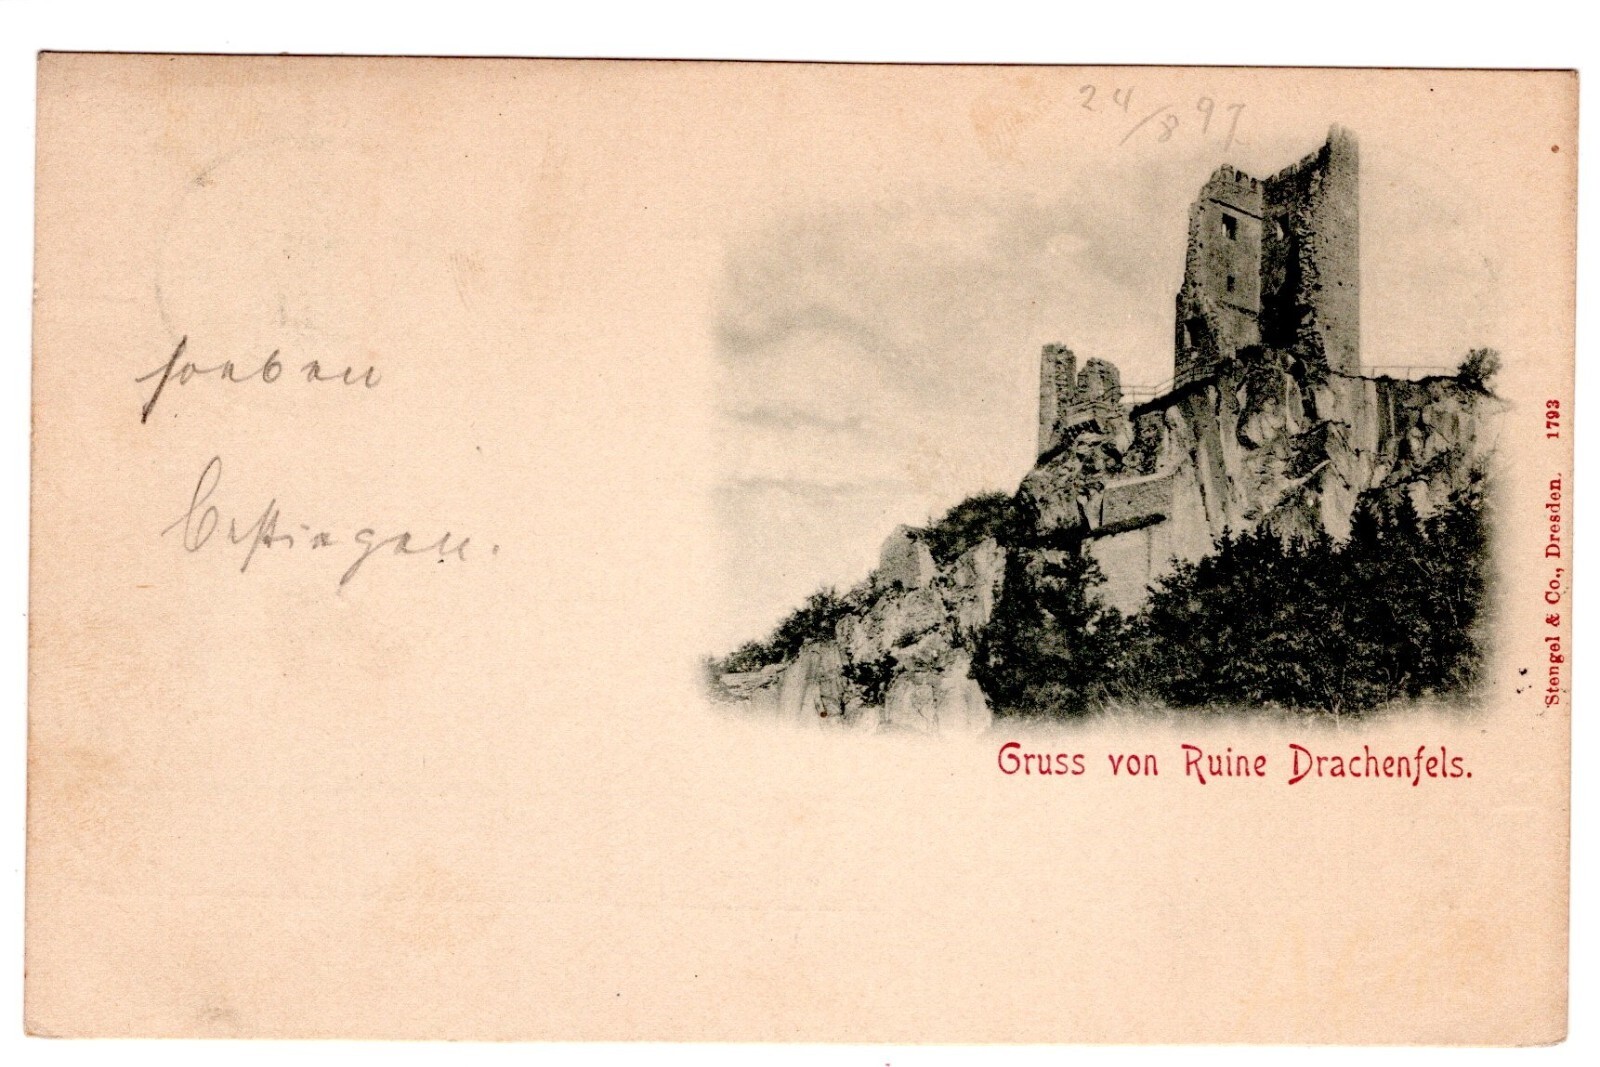 24/8 97
soeben
bestiegen.
Gruss von Ruine Drachenfels.
Stengel & Co., Dresden. 1793